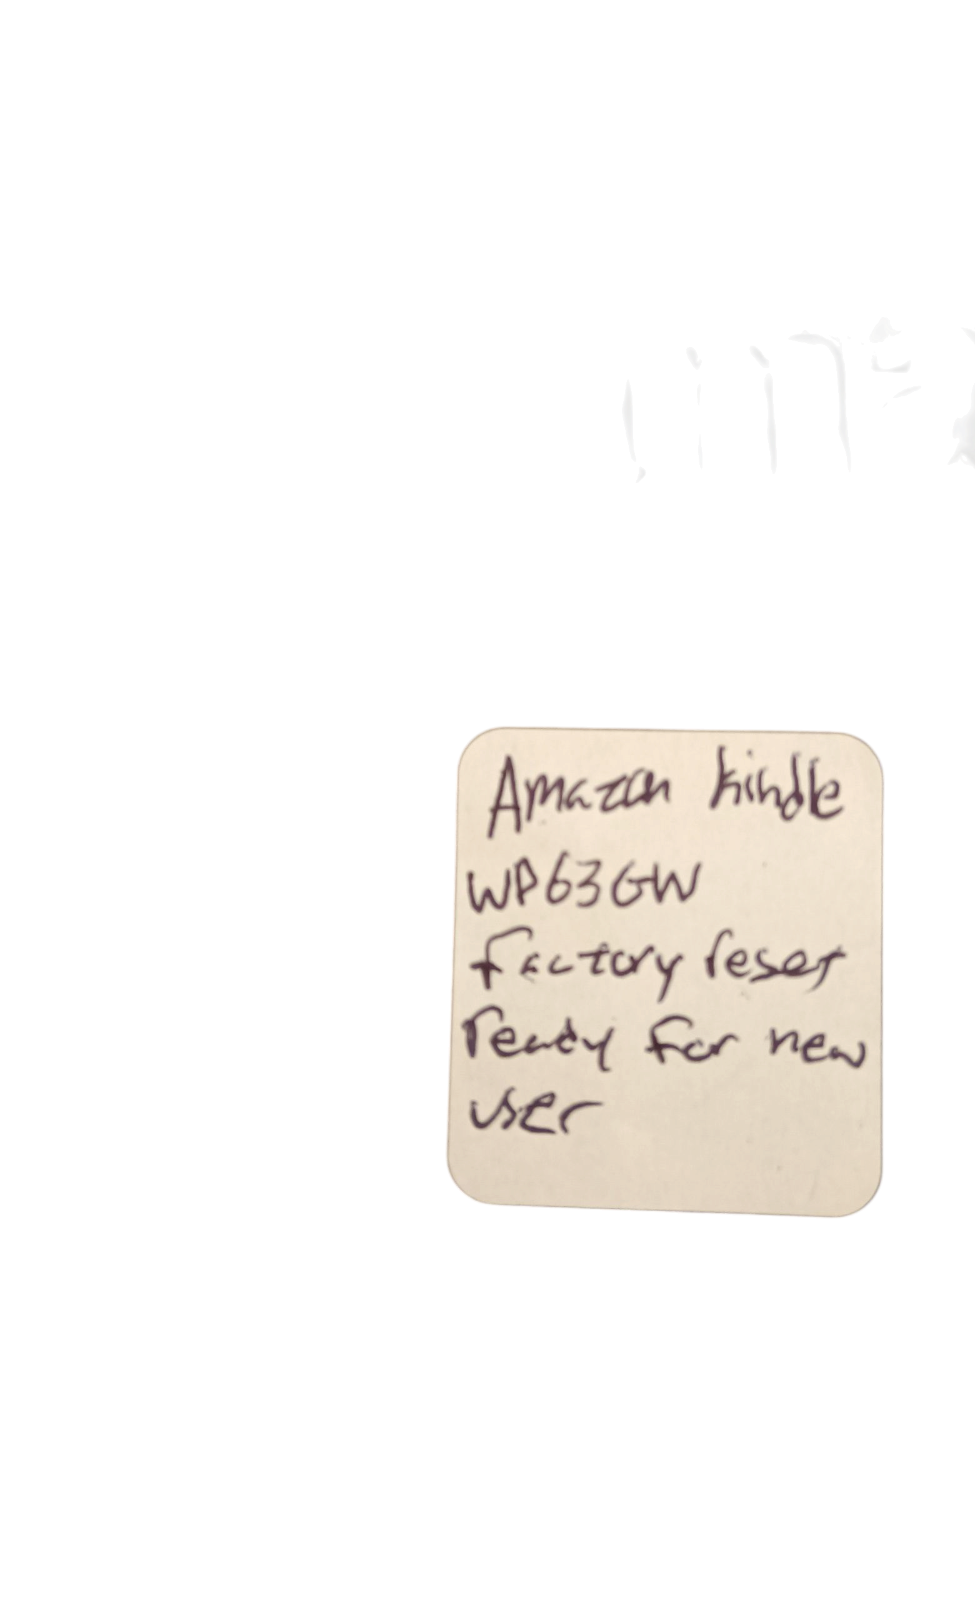 Amazon kindle
WP63GW
factory reset
ready for new
user